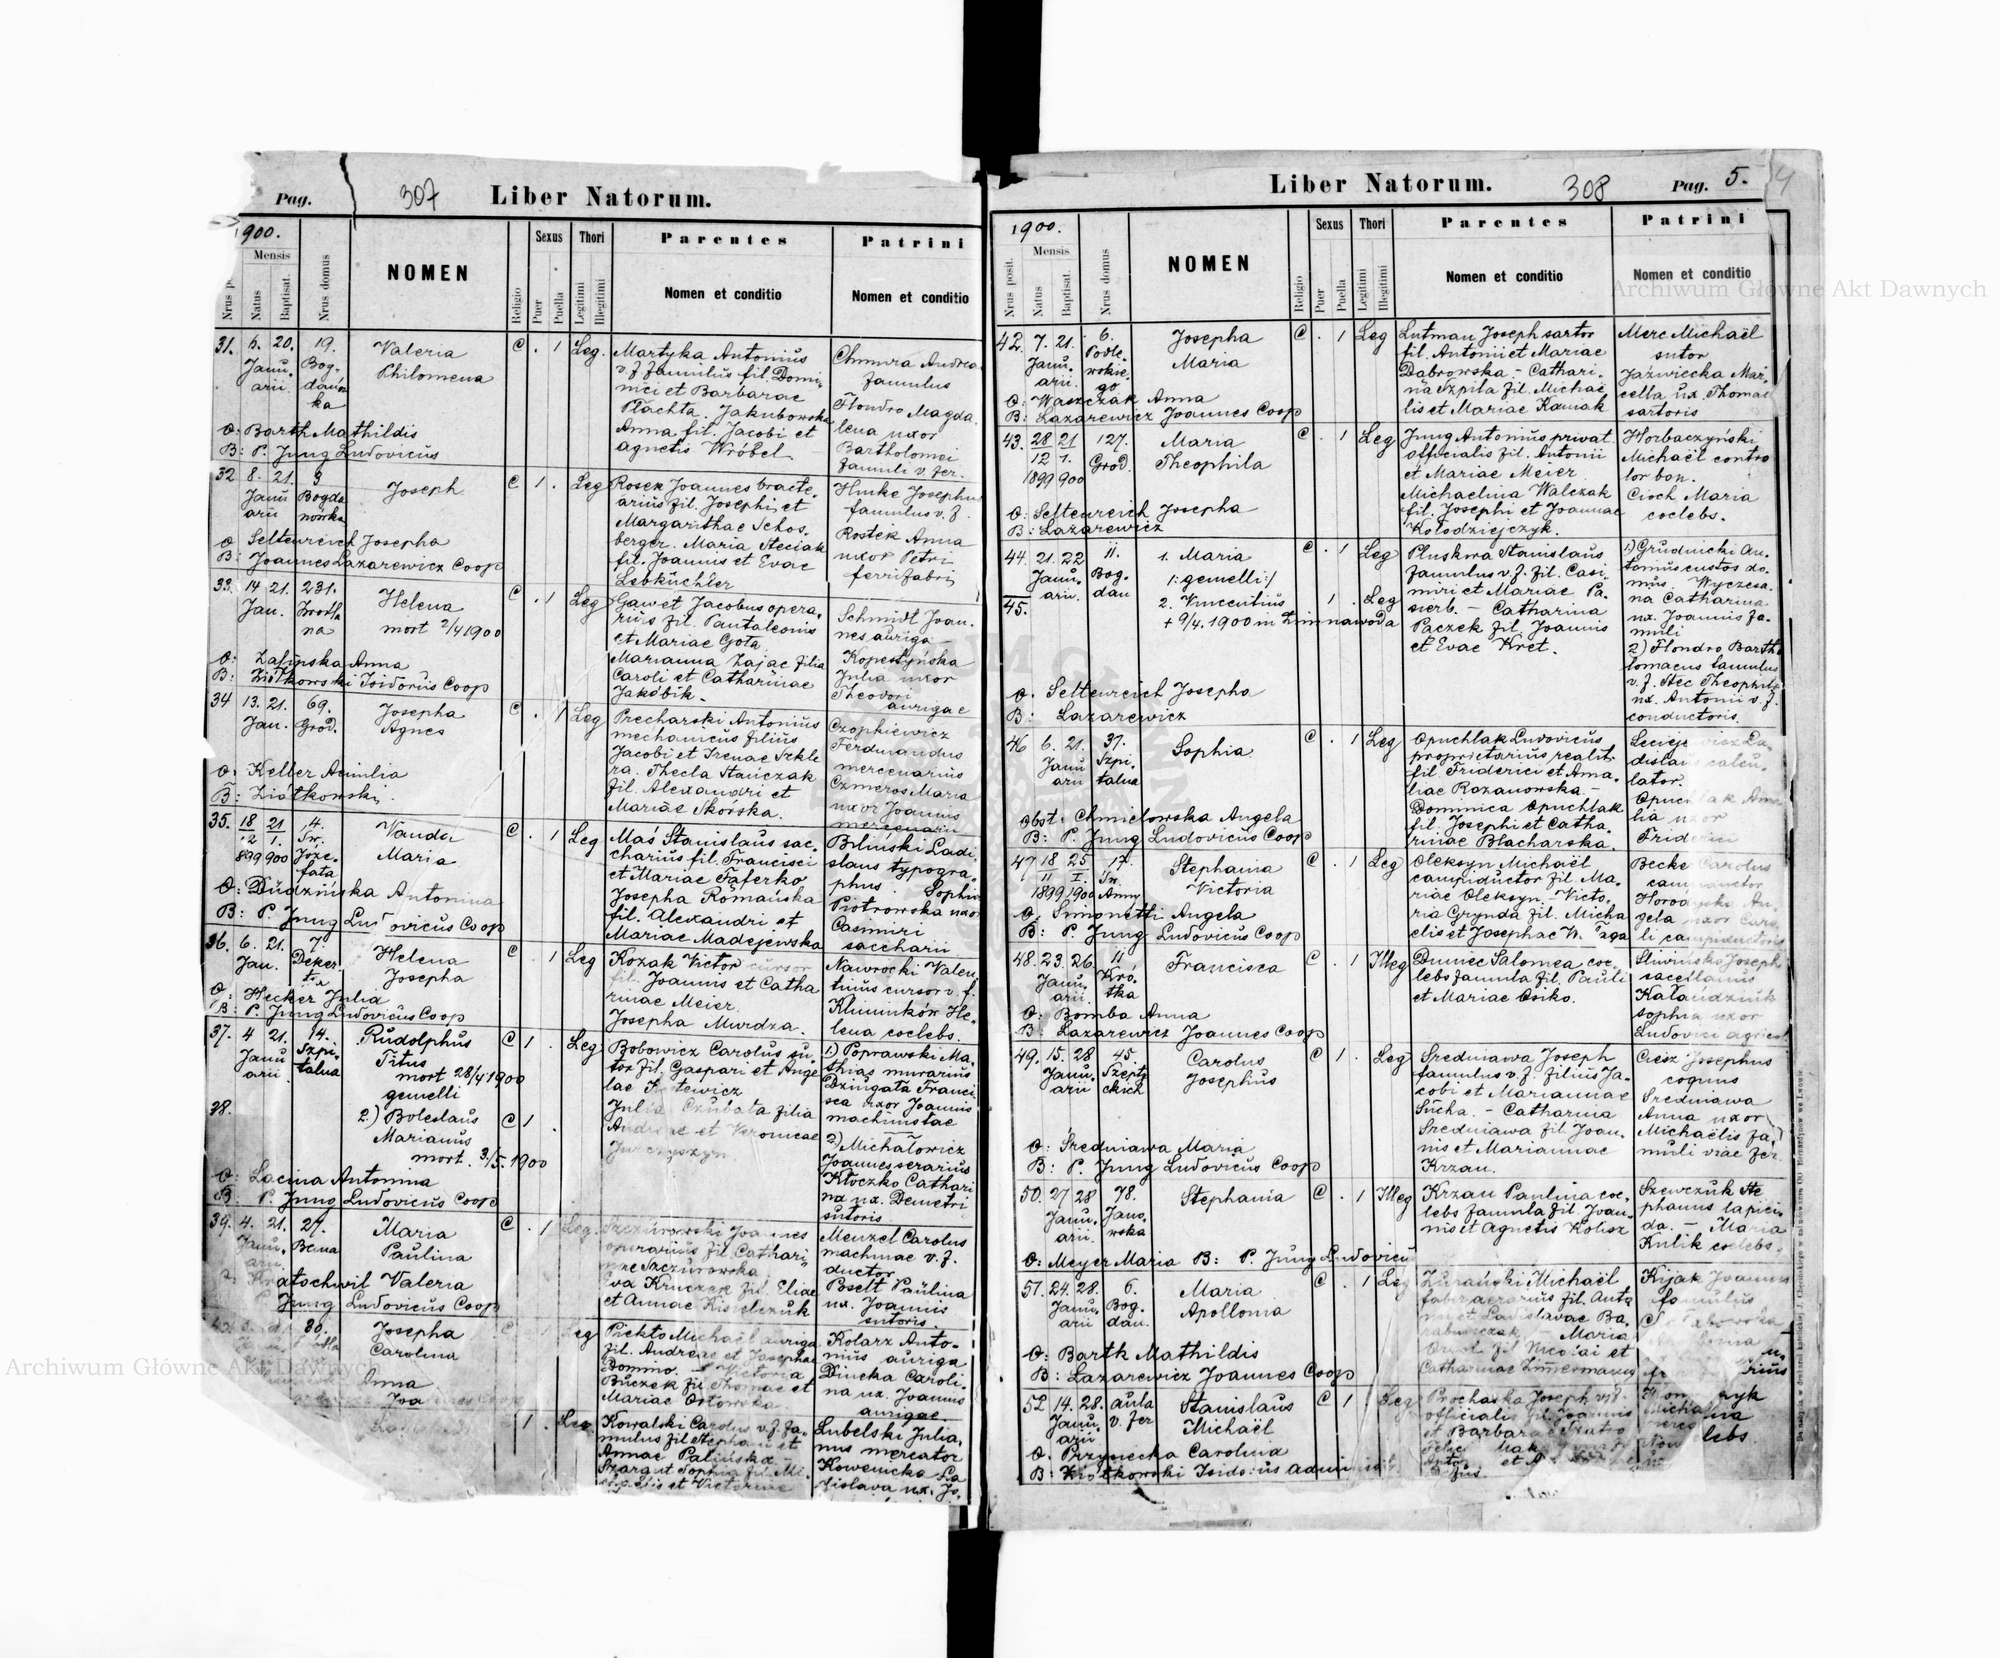 Pag. 307 Liber Natorum.
1900.
Mensis
Nrus p
Natus
Baptisat.
Nrus domus
NOMEN
Religio
Sexus
Puer
Puella
Thori
Legitimi
Illegitimi
Parentes
Nomen et conditio
Patrini
Nomen et conditio
31. 6. 20. 19. Valeria C . 1 Leg.
Janu- Bog- Philomena
arii. danow
ka
Martyka Antonius
v. f. famulus fil. Domi-
nici et Barbarae
Płachta. Jakubowska
Anna fil. Jacobi et
agnetis Wróbel
Chmura Andrea
famulus
Flondro Magda
lena uxor
Bartholomei
famuli v. fer.
O: Barth Mathildis
B: P. Jung Ludovicus
32 8. 21. 3 Joseph C 1 . Leg
Janu Bogda
arii nówka
Rosek Joannes bracte-
arius fil. Josephi et
Margarithae Schos.
berger. Maria Steciak
fil. Joannis et Evae
Lebküchler
Hmke Josephus
famulus v. f.
Rostek Anna
uxor Petri
ferrifabri
O Seltenreich Josepha
B: Joannes Lazarewicz Coop
33. 14 21. 231. Helena C . 1 Leg
Jan. Zrodla
na mort 2/4 1900
Gawet Jacobus opera-
rius fil. Pantaleonis
et Mariae Gota
Marianna Zajac filia
Caroli et Catharinae
Jakóbik.
Schmidt Joan-
nes auriga
Kopestyńska
Julia uxor
Theodori
aurigae
O: Zalipska Anna
B: Ziółkowski Isidorus Coop
34 13. 21. 69. Josepha C . 1 Leg
Jan. Grod. Agnes
Precharski Antonius
mechanicus filius
Jacobi et Irenae Szkle
ra. Thecla Stańczak
fil. Alexandri et
Mariae Skórska.
Czopkiewicz
Ferdinandus
mercenarius
Czmeros Maria
uxor Joannis
mercenarii
O: Keller Aemilia
B: Ziółkowski.
35. 18 21 4. Wanda C . 1 Leg
12 1. Św. Maria
899 900 Józe-
fata
Maś Stanislaus sac-
charius fil. Francisci
et Mariae Faferko
Josepha Romańska
fil. Alexandri et
Mariae Madejewska
Biliński Ladi
slaus typogra-
phus. Sophia
Piotrowska uxo
Casimiri
saccharii
O: Dudzińska Antonina
B: P. Jung Ludovicus Coop
36. 6. 21. 7 Helena C . 1 Leg
Jan. Deker Josepha
ta
Kozak Victor cursor
fil. Joannis et Catha
rinae Meier.
Josepha Murdza.
Nawrocki Valen
tinus cursor v. f.
Klimunków He-
lena coelebs.
O: Hecker Julia
B: P. Jung Ludovicus Coop
37. 4 21. 14. Rudolphus C 1 . Leg
Janu Szpi- Titus
arii talna mort 28/4 1900
gemelli
38. 2.) Boleslaus C 1
Marianus
mort. 3/5. 1900
Bobowicz Carolus su-
tor fil. Gaspari et Ange
lae
Julia Czubata filia
Andreae et Veronicae
Jurczyszyn.
1.) Poprawski Ma-
thias murarius
Dziugata Franci
sca uxor Joannis
machinistae
2.) Michałowicz
Joannes serarius
Kłoczko Cathari
na ux. Demetri
sutoris
O: Lacina Antonina
B P. Jung Ludovicus Coop
39. 4. 21. 27. Maria C . 1 Leg.
Janu- Bema Paulina
arii.
Szczurowski Joannes
operarius fil. Cathari-
nae Szczurowska
Eva Kruczek fil. Eliae
et Annae Kisielczuk
Menzel Carolus
machinae v. f.
ductor
Posełt Paulina
ux. Joannis
sutoris.
Kratochwil Valeria
Jung Ludovicus Coop
30. Josepha Leg
Carolina
Piekto Michaël auriga
fil. Andreae et Josephae
Domino. Victoria
Buczek fil Thomae et
Mariae Orłowska.
Kolarz Anto-
nius auriga
Diucka Caroli-
na ux. Joannis
aurigae.
Anna
1 . Leg
Kowalski Carolus v. f. fa-
mulus fil Stephani et
Annae Palińska.
Szargut Sophia fil. Mi-
chaelis et Victoriae
Lubelski Julia-
nus mercator
Kowenicka La
dislava ux. Jo.
Liber Natorum. 308 Pag. 5. 4
1900.
Mensis
Nrus posit.
Natus
Baptisat.
Nrus domus
NOMEN
Religio
Sexus
Puer
Puella
Thori
Legitimi
Illegitimi
Parentes
Nomen et conditio
Patrini
Nomen et conditio
42. 7. 21. 6. Josepha C . 1 Leg
Janu- Podle- Maria
arii. wskie-
go
Lutman Joseph sartor
fil. Antonii et Mariae
Dąbrowska. - Cathari-
na Szpila fil. Michae
lis et Mariae Kaniak
Merc Michaël
sutor
Jaźwiecka Mar-
cella ux. Thomae
sartoris
O: Waszczak Anna
B: Lazarewicz Joannes Coop
43. 28 21 127. Maria C . 1 Leg
12 1. Grod. Theophila
1899 900
Jung Antonius privat.
officialis fil. Antonii
et Mariae Meier
Michaelina Walczak
fil. Josephi et Joannae
Kołodziejczyk.
Horbaczyński
Michaël contro
lor bon.
Cioch Maria
coelebs.
O: Seltenreich Josepha
B: Lazarewicz
44. 21. 22 11. 1. Maria C . 1 Leg
Janu- Bog- /: gemelli :/
arii. dan
45. 2. Vincentius 1 . Leg
+ 9/4. 1900 in Zimnawoda
Pluskwa Stanislaus
famulus v. f. fil. Casi-
miri et Mariae Pa-
sierb. - Catharina
Paczek fil. Joannis
et Evae Kret.
1) Grudnicki An-
tonius custos do-
mus. Wyczesa-
na Catharina
ux. Joannis fa-
muli
2) Flondro Barth
lomaeus famulus
v. f. Stec Theophila
ux. Antonii v. f.
conductoris.
O. Seltenreich Josepha
B: Lazarewicz
46 6. 21. 37. Sophia C . 1 Leg
Janu Szpi-
arii talna
Opuchlak Ludovicus
proprietarius realit.
fil. Friderici et Ama-
liae Rozanowska. -
Dominica Opuchlak
fil. Josephi et Catha-
rinae Blacharska.
dislaus calcu-
lator.
Opuchlak Ama
lia uxor
Friderici
obst. Chmielowska Angela
B: P. Jung Ludovicus Coop
47 18 25 17. Stephania C . 1 Leg
11 I. Św. Victoria
1899 1900 Anny
Oleksyn Michaël
campiductor fil Ma-
riae Oleksyn. - Victo-
ria Grynda fil. Micha
elis et Josephae
Becke Carolus
campiductor
gela uxor Caro
li campiductoris
O: Simonetti Angela
B: P. Jung Ludovicus Coop
48. 23. 26. 11 Francisca C . 1 Illeg
Janu- Kró-
arii. tka
Dumec Salomea coe-
lebs famula fil. Pauli
et Mariae Osiko.
Śliwiński Joseph
sacellanus
Kałandziuk
Sophia uxor
Ludovici agricol
O: Bomba Anna
B: Lazarewicz Joannes Coop
49. 15. 28 45. Carolus C 1 . Leg
Janu- Szepty Josephus
arii ckich
Sredniawa Joseph
famulus v. f. filius Ja-
cobi et Mariannae
Sucha. - Catharina
Sredniawa fil Joan-
nis et Mariannae
Krzan.
Ciesz Josephus
coquus
Sredniawa
Anna uxor
Michaëlis fa-
muli viae fer
O: Sredniawa Maria
B: P. Jung Ludovicus Coop
50. 27 28 78. Stephania C . 1 Illeg
Janu- Jano-
arii. wska
Krzan Paulina coe-
lebs famula fil. Joan-
nis et Agnetis Kolisz
Szewczuk Ste
phanus lapici-
da. - Maria
Kulik coelebs.
O: Meyer Maria B: P. Jung Ludovicus
51. 24. 28. 6. Maria C . 1 Leg
Janu- Bog- Apollonia
arii dan.
Zurański Michaël
faber aerarius fil. Anto
nii et Ladislavae Ba-
rabniczak - Maria
Oriol fil Nicolai et
Catharinae Zimmermann
Kijak Joannes
famulus
O: Barth Mathildis
B: Lazarewicz Joannes Coop
52 14. 28. aula Stanislaus C 1 Leg
Janu- v. fer Michaël
arii
Prochaska Joseph
officialis fil. Joannis
et Barbarae
O. Przynecka Carolina
B: Ziółkowski Isidorus
Archiwum Główne Akt Dawnych
Archiwum Główne Akt Dawnych